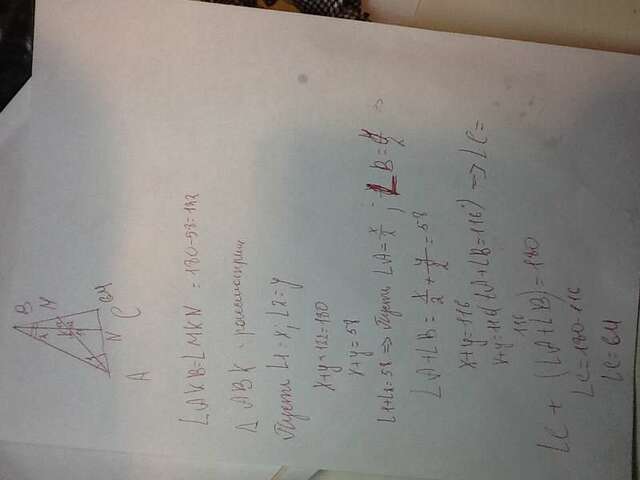 B
M
64
N
C
A
∠AKB=∠MKN =180-58=122
Δ ABK - рассмотрим
Пусть ∠1=x, ∠2=y
x+y+122=180
x+y=58
∠1+∠2=58 => Пусть ∠A=x/2 ; ∠B=y/2 =>
∠A+∠B= x/2 + y/2 =58
x+y=116
x+y=116(∠A+∠B=116°) => ∠C=
116
∠C + (∠A+∠B)=180
∠C=180-116
∠C=64